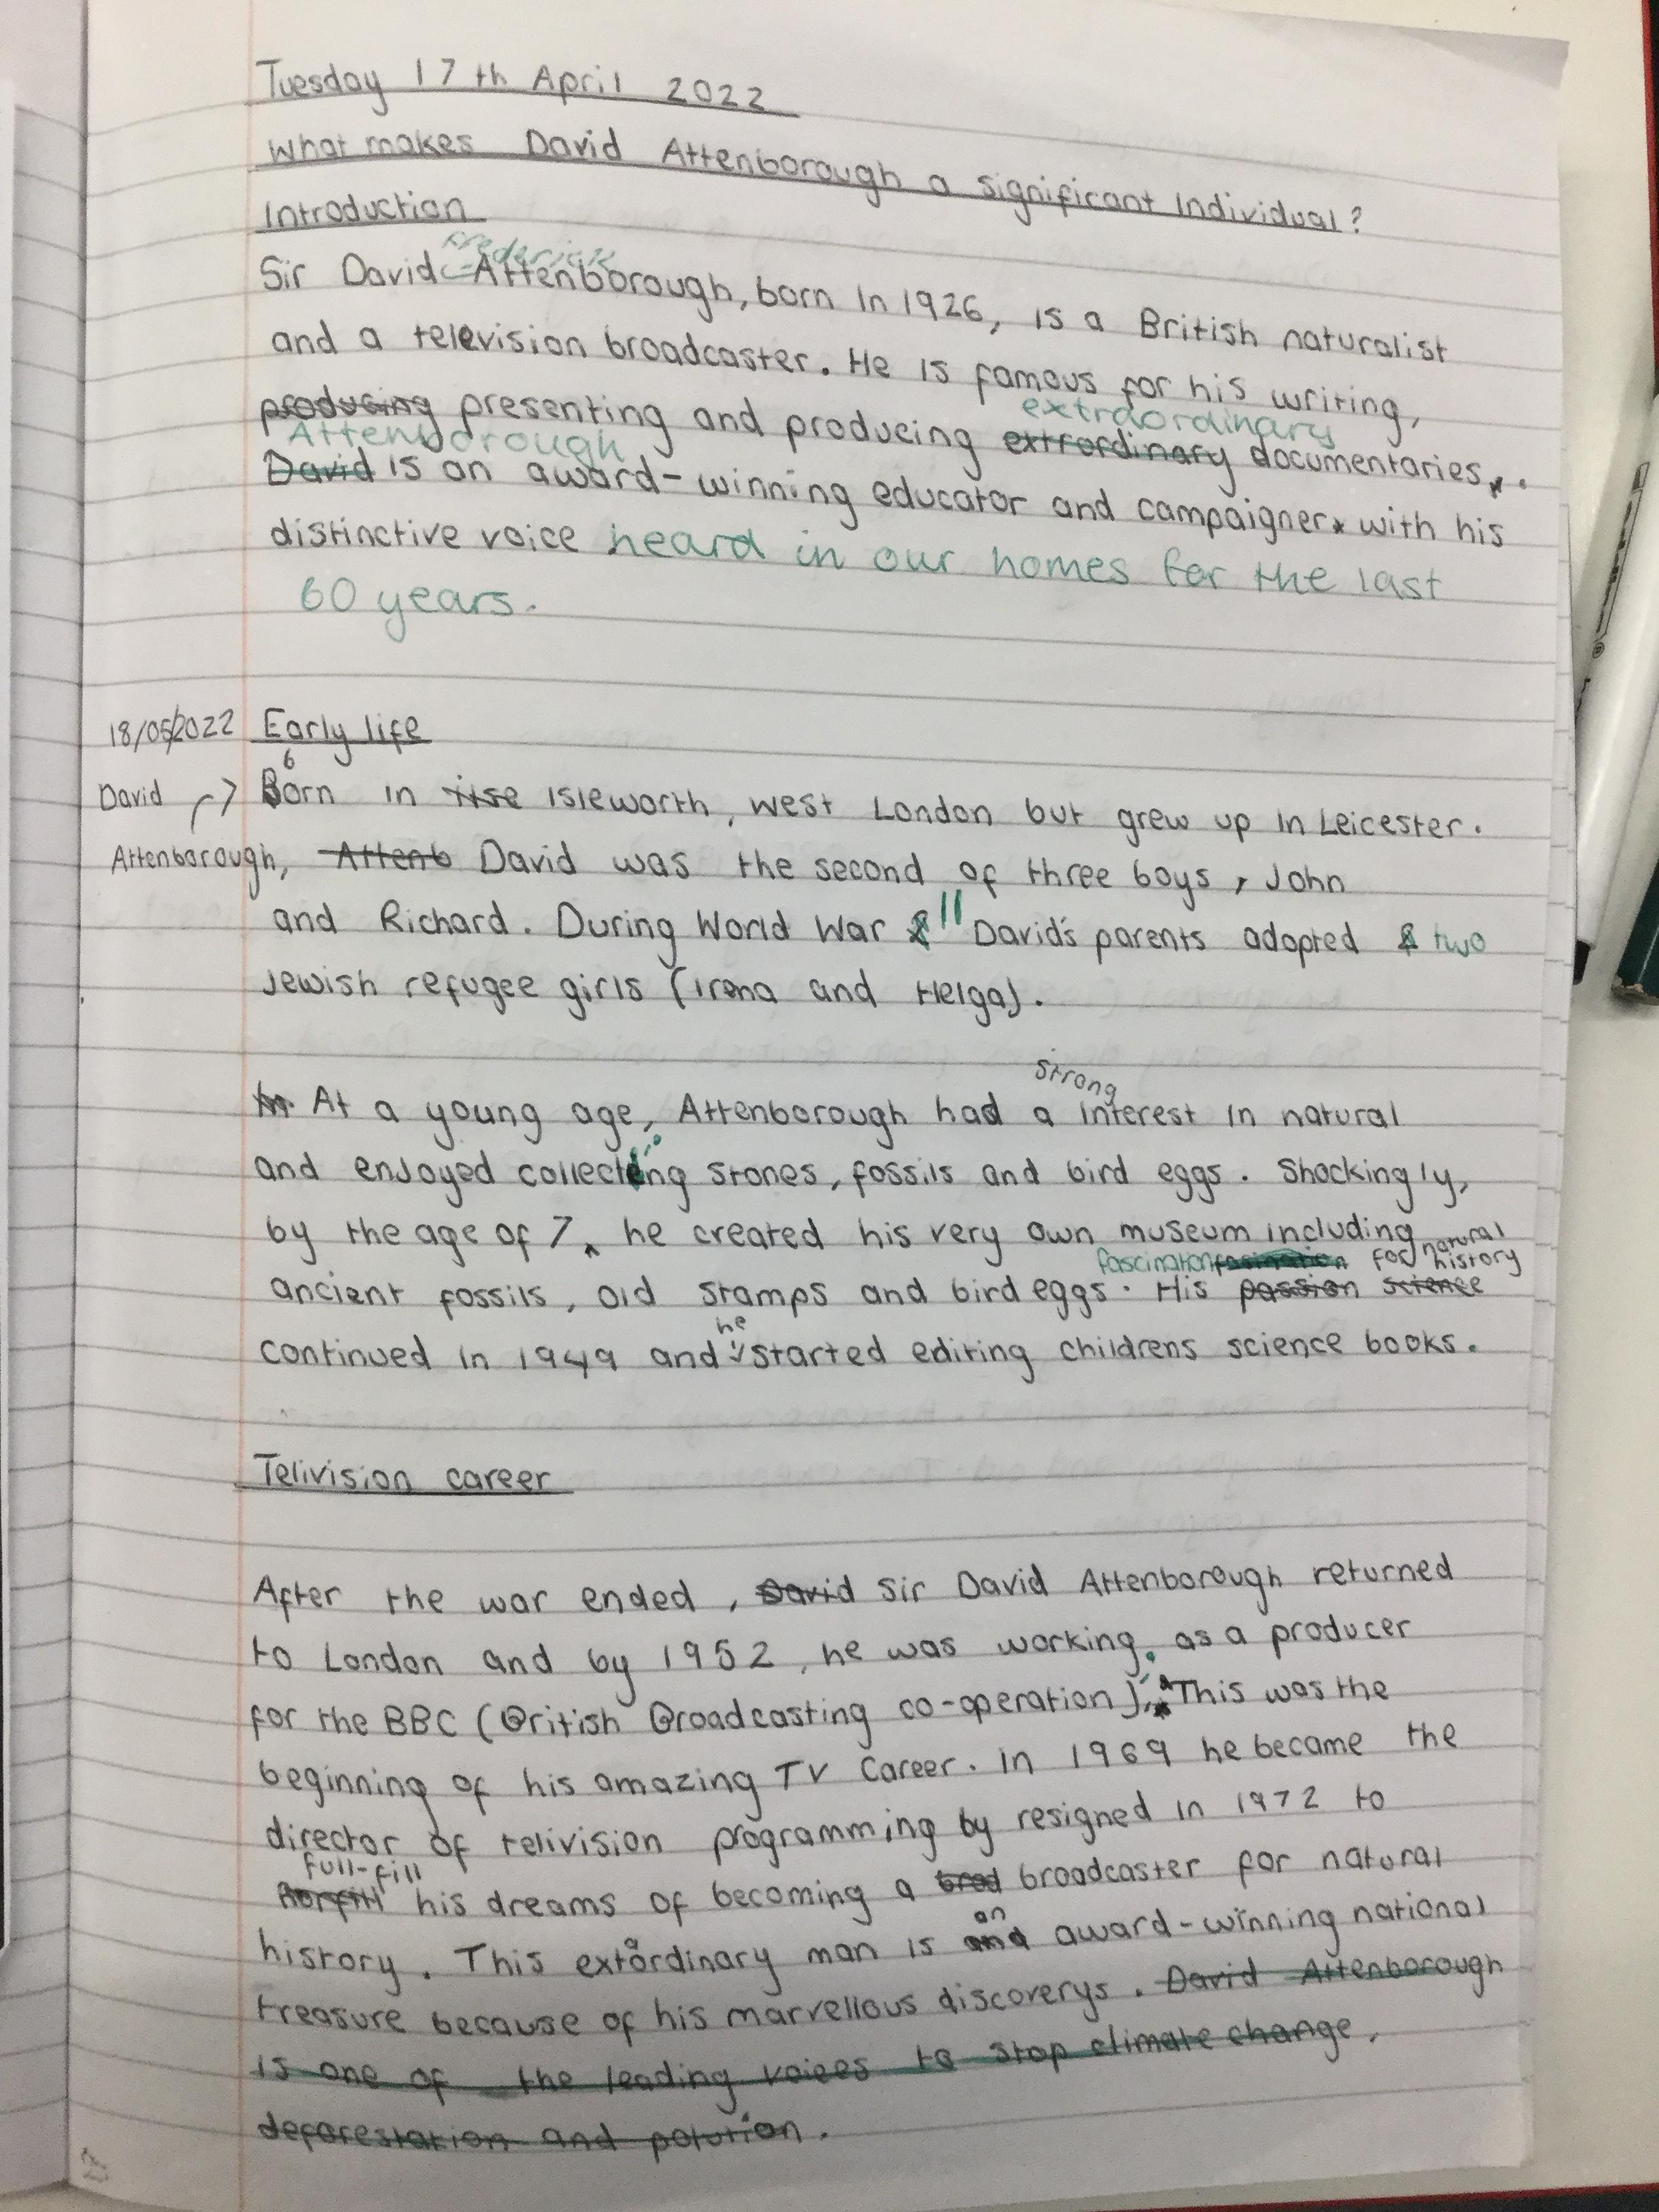 Tuesday 17th April 2022
What makes David Attenborough a significant Individual?
Introduction
Frederick
Sir David Attenborough, born in 1926, is a British naturalist
and a television broadcaster. He is famous for his writing,
extraordinary
producing presenting and producing extrordinary documentaries.
Attenborough
David is an award-winning educator and campaigner with his
distinctive voice heard in our homes for the last
60 years.
18/05/2022 Early life
David → Born in rise Isleworth, west London but grew up in Leicester.
Attenborough, Attenb David was the second of three boys, John
and Richard. During World War II David's parents adopted two
Jewish refugee girls (Irena and Helga).
strong
In At a young age, Attenborough had a interest in natural
and enjoyed collecting stones, fossils and bird eggs. Shockingly,
by the age of 7, he created his very own museum including
fascination fasination for natural history
ancient fossils, old stamps and bird eggs. His passion science
he
continued in 1949 and started editing childrens science books.
Telivision career
After the war ended, David Sir David Attenborough returned
to London and by 1952, he was working as a producer
for the BBC (British Broadcasting co-operation). This was the
beginning of his amazing TV career. In 1969 he became the
director of telivision programming by resigned in 1972 to
full-fill
his dreams of becoming a brod broadcaster for natural
an
history. This extordinary man is and award-winning national
treasure because of his marvellous discoverys. David Attenborough
is one of the leading voices to stop climate change,
deforestation and polution.